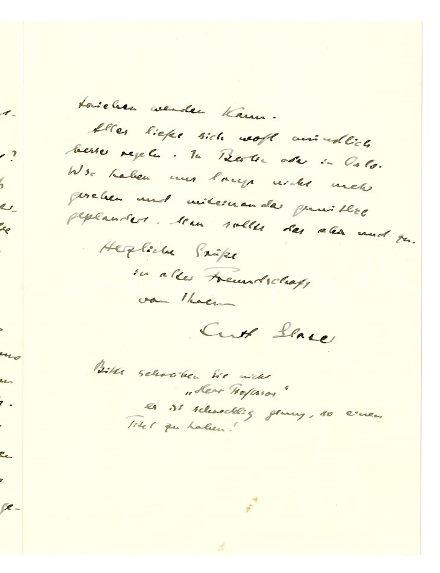 werden kann.
Alles ließe sich wohl mündlich
besser regeln. In Berlin oder in Oslo.
Wir haben uns lange nicht mehr
gesehen und miteinander
geplaudert. Man sollte das aber und zu.
Herzliche Grüße
in alter Freundschaft
von Ihrem
Curt Glaser
Bitte schreiben Sie nicht
„Herr Professor"
es ist schrecklich genug, so einen
Titel zu haben!